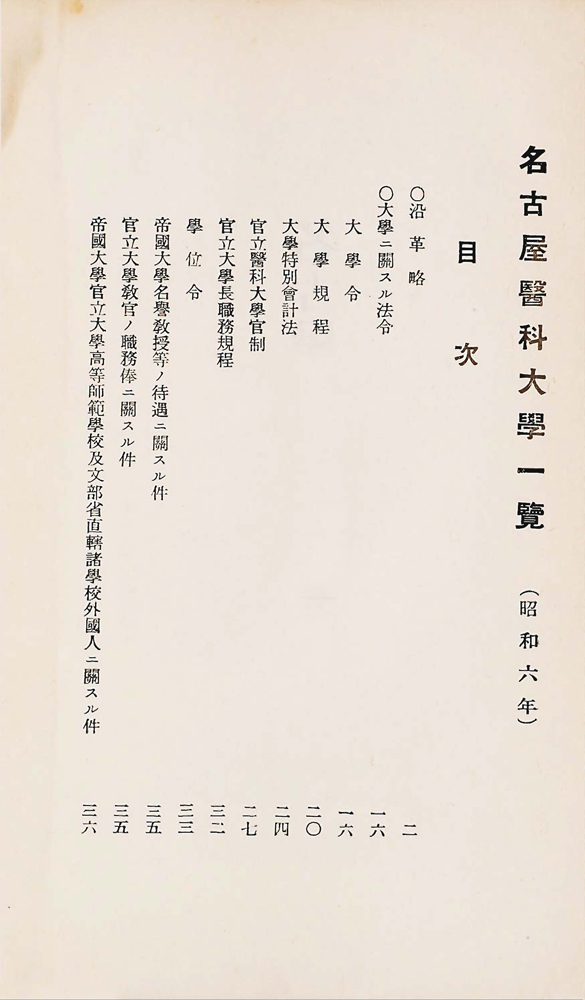 名古屋醫科大學一覽(昭和六年)
目次
〇沿革略 二
〇大學ニ關スル法令 一六
大學令 一六
大學規程 二〇
大學特別會計法 二四
官立醫科大學官制 二七
官立大學長職務規程 三二
學位令 三三
帝國大學名譽敎授等ノ待遇ニ關スル件 三五
官立大學敎官ノ職務俸ニ關スル件 三五
帝國大學官立大學高等師範學校及文部省直轄諸學校外國人ニ關スル件 三六